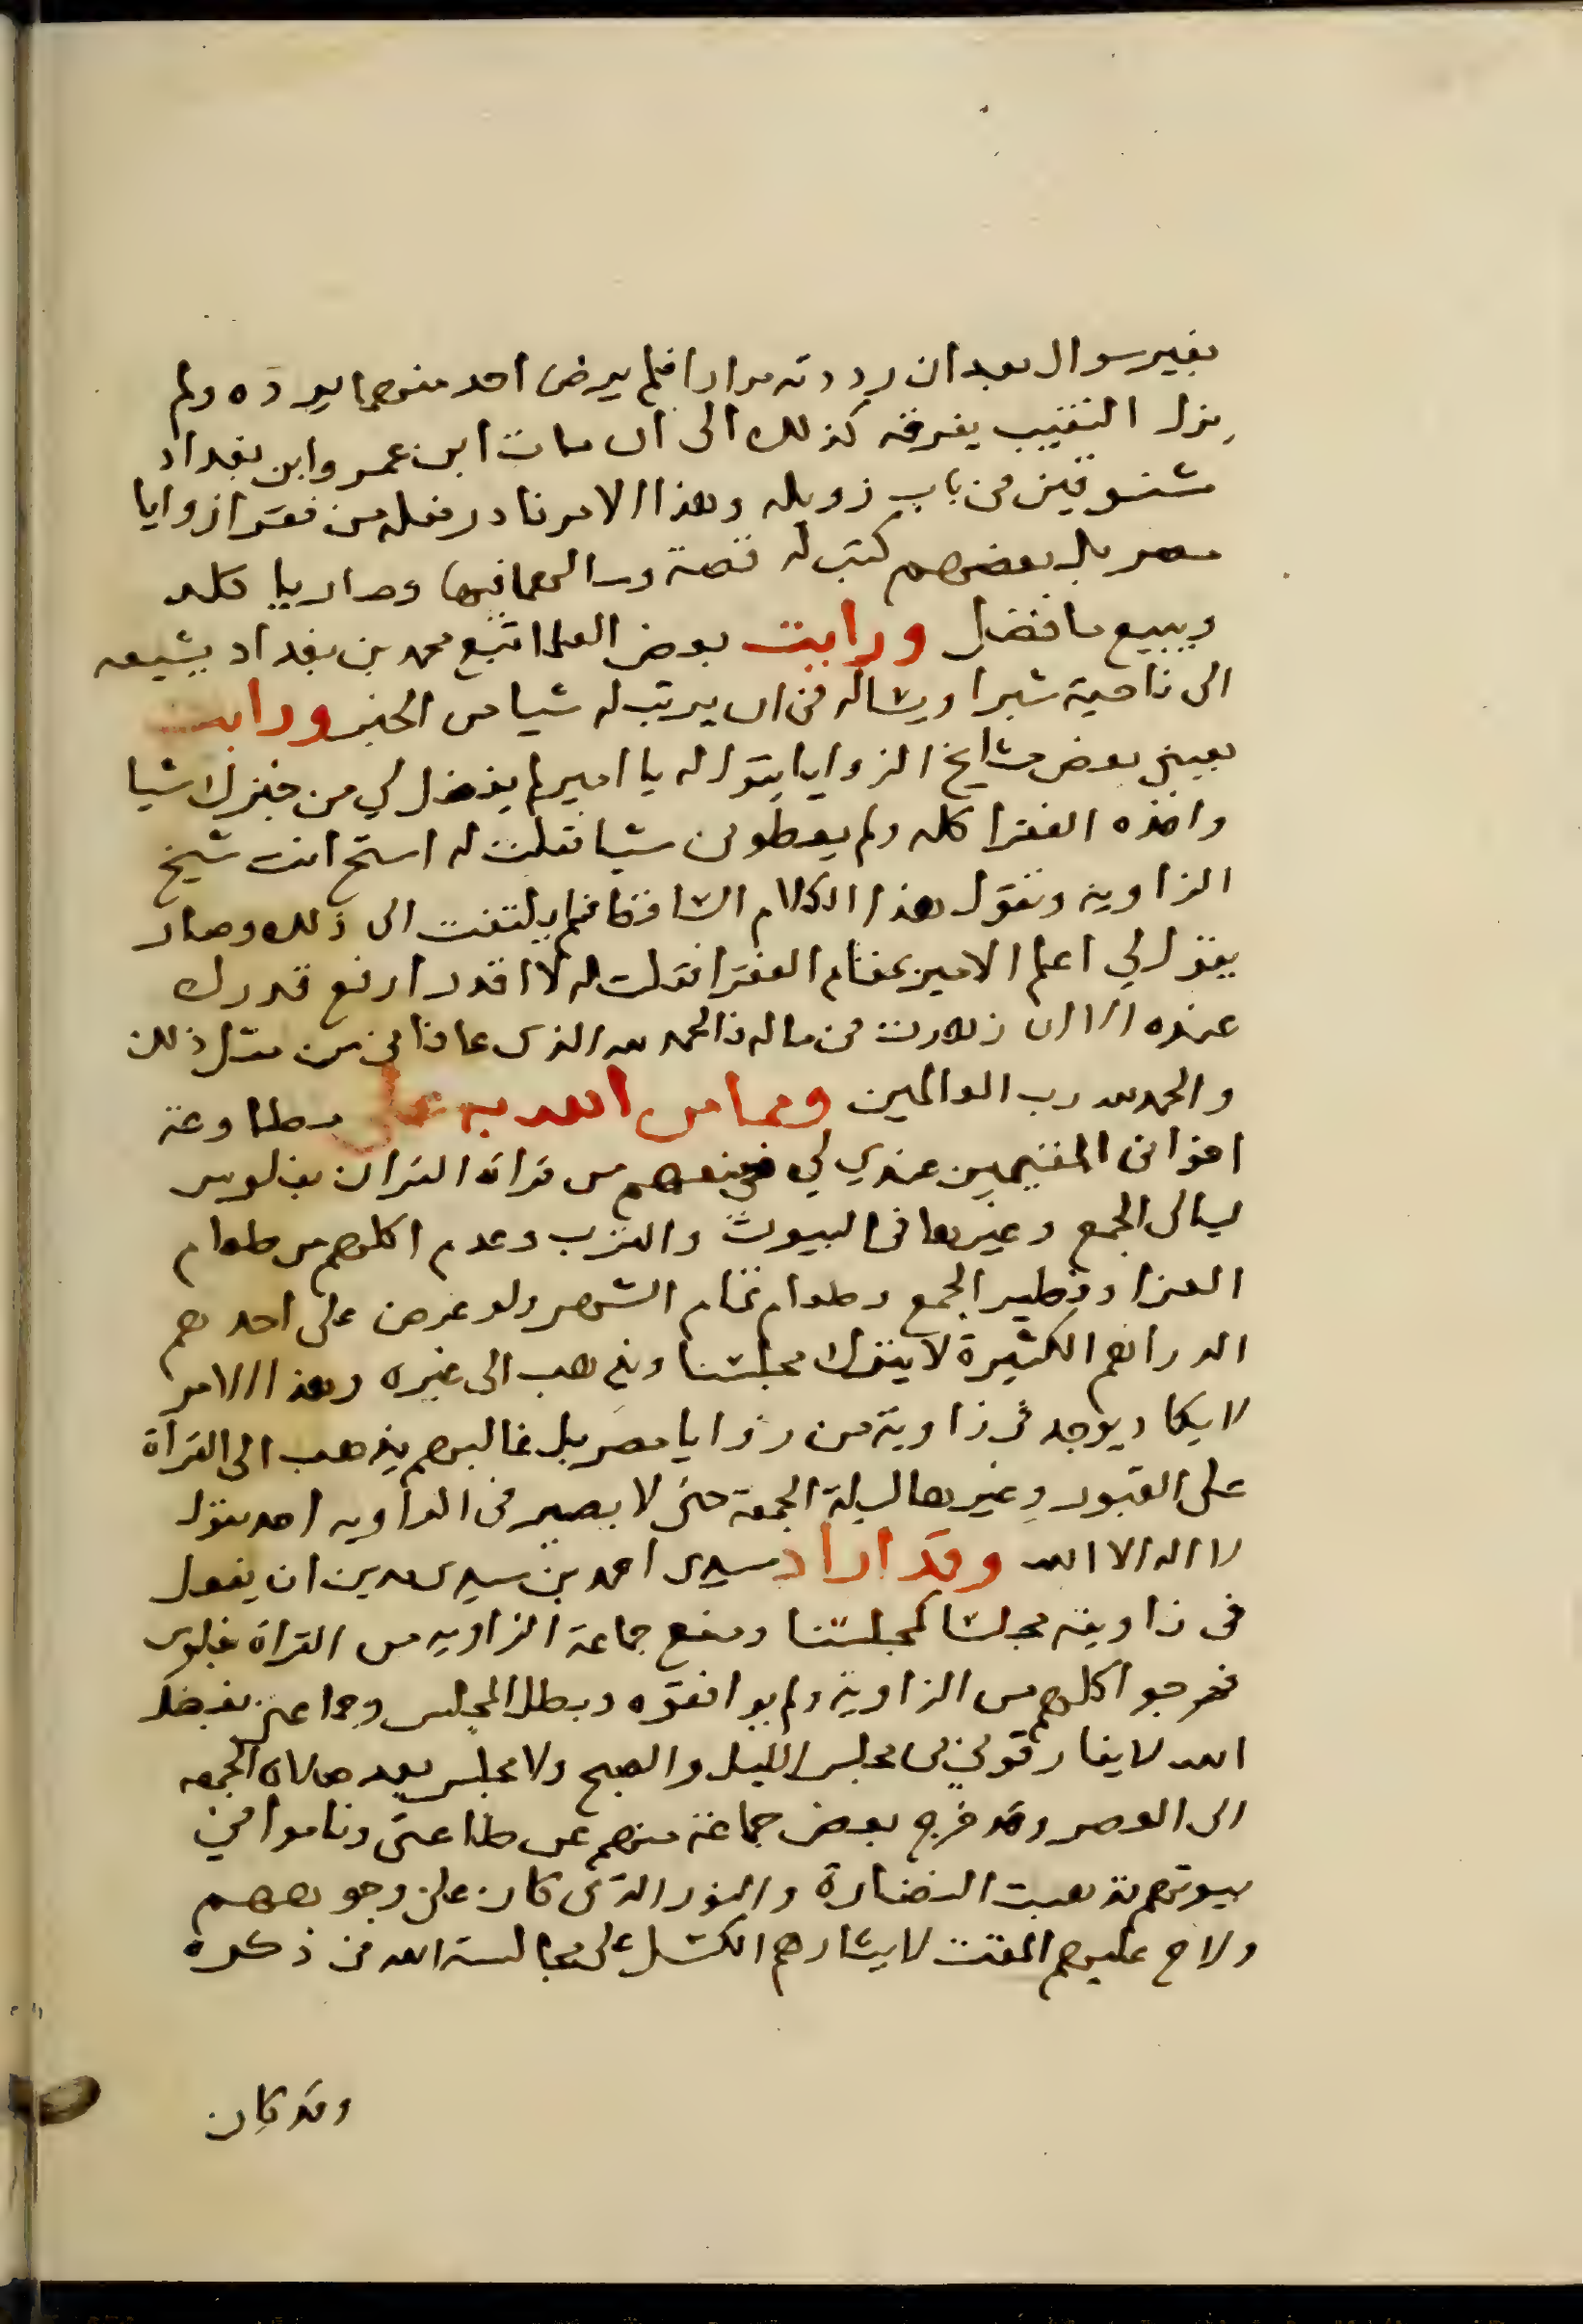 بغير سوال بعد ان رددته مرارا فلم يرض احد منهما يرده ولم
يزل النقيب يفرقه كذلك الى ان مات ابن عمر وابن بغداد
مشنوقين في باب زويله وهذا الامر نادر فعله من فقرا زوايا
مصر بل بعضهم كتب له قصة وسالهما فيها وصار ياكله
ويبيع ما فضل ورايت بعض العلما تبع محمد بن بغداد يشيعه
الى ناحية شبرا ويساله في ان يرتب له شيا من الخبز ورايت
بعيني بعض مشايخ الزوايا يقول له يا امير لم يفضل لي من خبزك شيا
واخذه الفقرا كله ولم يعطوني شيا فقلت له استح انت شيخ
الزاوية وتقول هذا الكلام الساقط فلم يلتفت الى ذلك وصار
يقول لي اعلم الامير بمقام الفقرا فقلت له لا اقدر ارفع قدرك
عنده الا ان زهدت في ماله فالحمد لله الذي عافاني من مثل ذلك
والحمد لله رب العالمين ومما من الله به على مطاوعة
اخواني المقيمين عندي لي في منعهم من قراة القران بفلوس
ليالى الجمع وغيرها في البيوت والترب وعدم اكلهم من طعام
العزا وفطير الجمع وطعام تمام الشهر ولو عرض على احدهم
الدراهم الكثيرة لا يترك مجلسنا ويذهب الى غيره وهذا الامر
لا يكاد يوجد في زاوية من زوايا مصر بل غالبهم يذهب الى القراة
على القبور وغيرها ليلة الجمعة حتى لا يصير في الزاويه احد يقول
لا اله الا الله وقد اراد سيدى احمد بن سيدى مدين ان يفعل
فى زاويته مجلسا كمجلسنا ومنع جماعة الزاويه من القراة بفلوس
فخرجوا كلهم من الزاوية ولم يوافقوه وبطل المجلس وجماعتي بفضل
الله لا يفارقوني في مجلس الليل والصبح ولا مجلس بعد صلاة الجمعه
الى العصر وقد خرج بعض جماعة منهم عن طاعتى وناموا في
بيوتهم فذهبت النضارة والنور الذى كان على وجوههم
ولاح عليهم المقت لايثارهم الكسل على مجالسة الله في ذكره
وقد كان